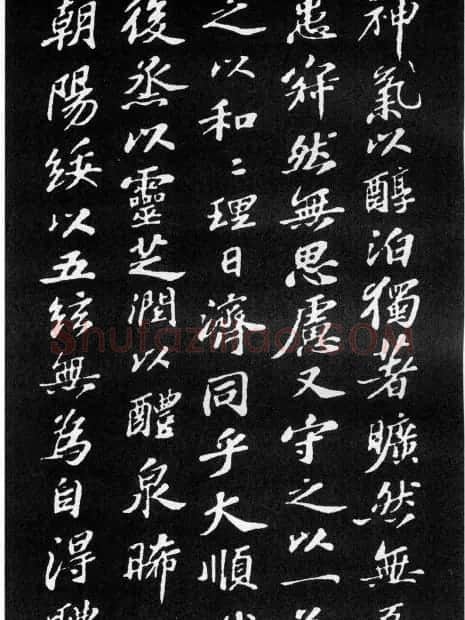 神氣以醇泊獨著曠然無
患寂然無思慮又守之以一
之以和〻理日濟同乎大順
後烝以靈芝潤以醴泉晞
朝陽綏以五絃無為自得
Shufaziliao.COM